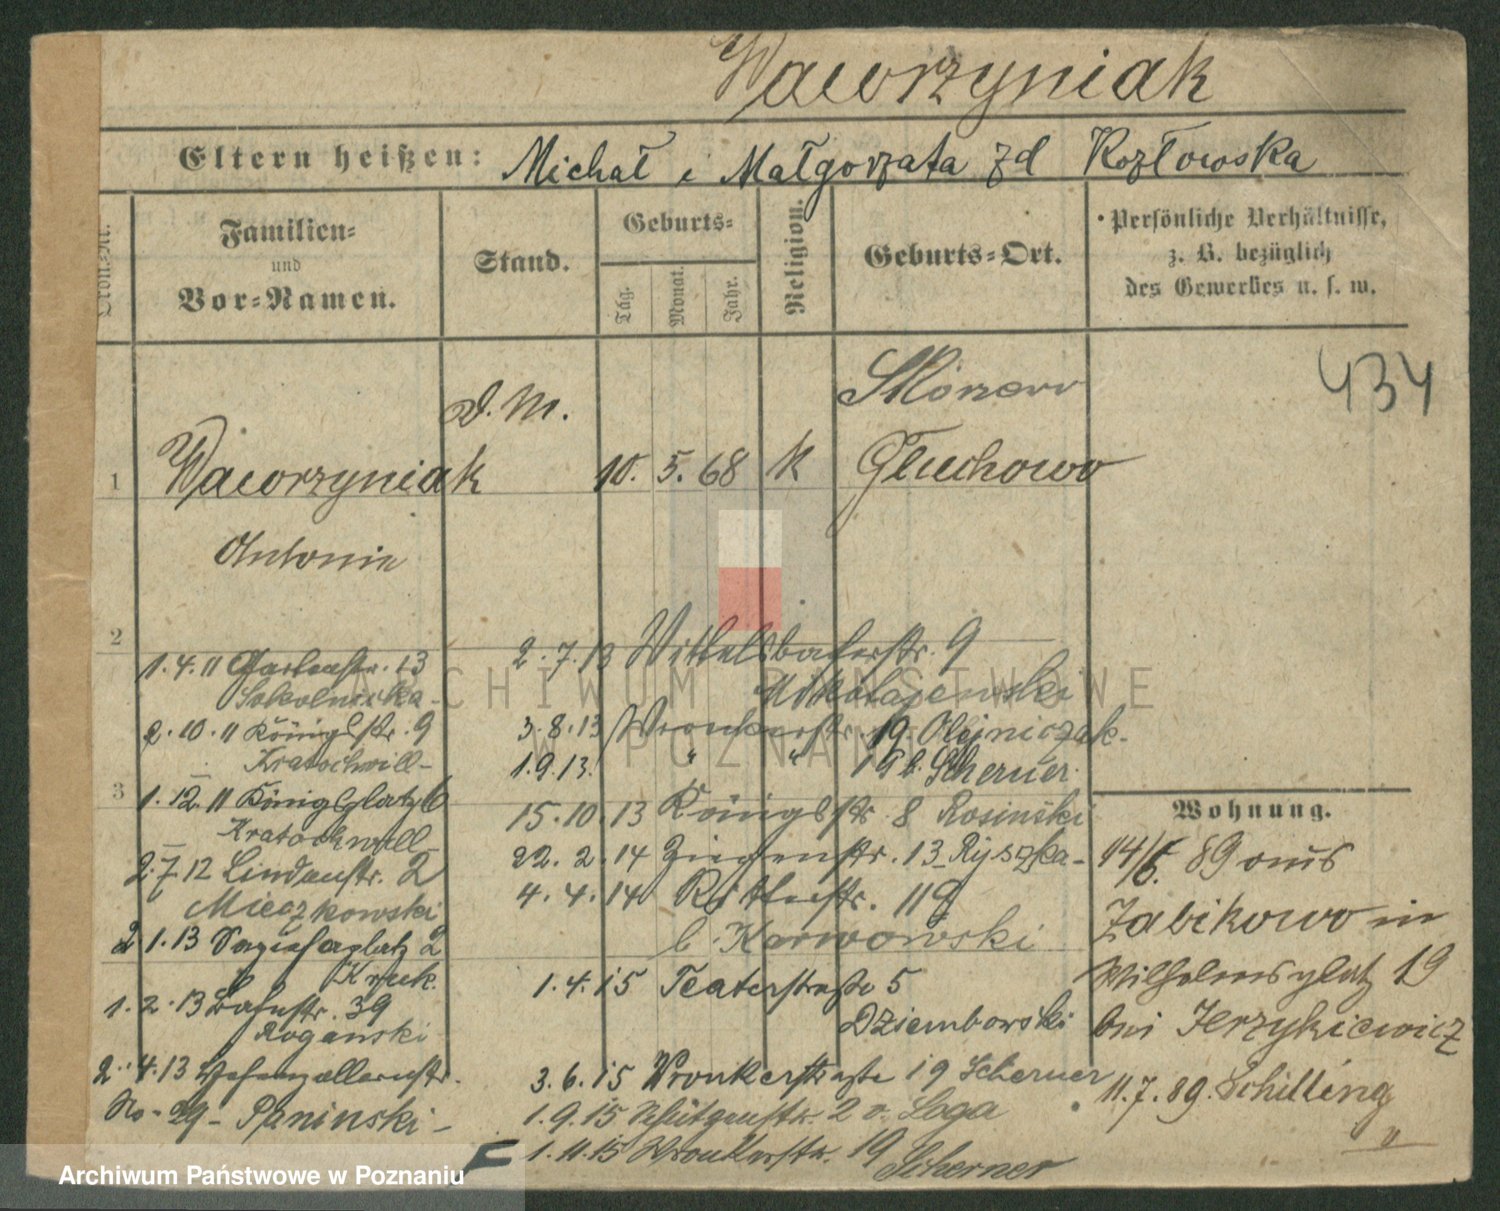 Wawrzyniak
Eltern heißen: Michał i Małgorzata zd Kozłowska
Familien=
und
Vor=Namen.
Stand.
Geburts=
Tag.
Monat.
Jahr.
Religion.
Geburts=Ort.
Persönliche Verhältnisse,
z. B. bezüglich
des Gewerbes u. s. w.
434
D. M.
Skórzewo
1 Wawrzyniak 10. 5. 68 k Głuchowo
Antonie
2
1.4.11 Gartenstr. 13
Sokolnicka
2.10.11 Königstr. 9
Kratochwill-
3
1.12.11 Königsplatz 6
Kratochwill-
2.7.12 Lindenstr. 2
Mieczkowski
2 1.13 Sapiehaplatz 2
Kruk.
1.2.13 Bahnstr. 39
Roganski
2.4.13 Hohenzollernstr.
No- 29- Paninski-
2.7.13 Wittelsbacherstr. 9
Mikołajewski
3.8.13 Wronkerstr. 19. Olejniczak-
1.9.13. " " 19 b. Scherner.
15.10.13 Königstr. 8 Rosinski
22.2.14 Ziegenstr. 13 Ryszka-
4.4.14 Ritterstr. 11
b Karwowski
1.4.15 Teaterstraße 5
Dziembowski
3.6.15 Wronkerstraße 19 Scherner
1.9.15 Schützenstr. 2 v. Loga
1.11.15 Wronkerstr. 19
Scherner
Wohnung.
14/6. 89 aus
Zabikowo in
Wilhelmsplatz 19
bei Jerzykiewicz
11.7.89. Schilling
"
ARCHIWUM PAŃSTWOWE
W POZNANIU
Archiwum Państwowe w Poznaniu